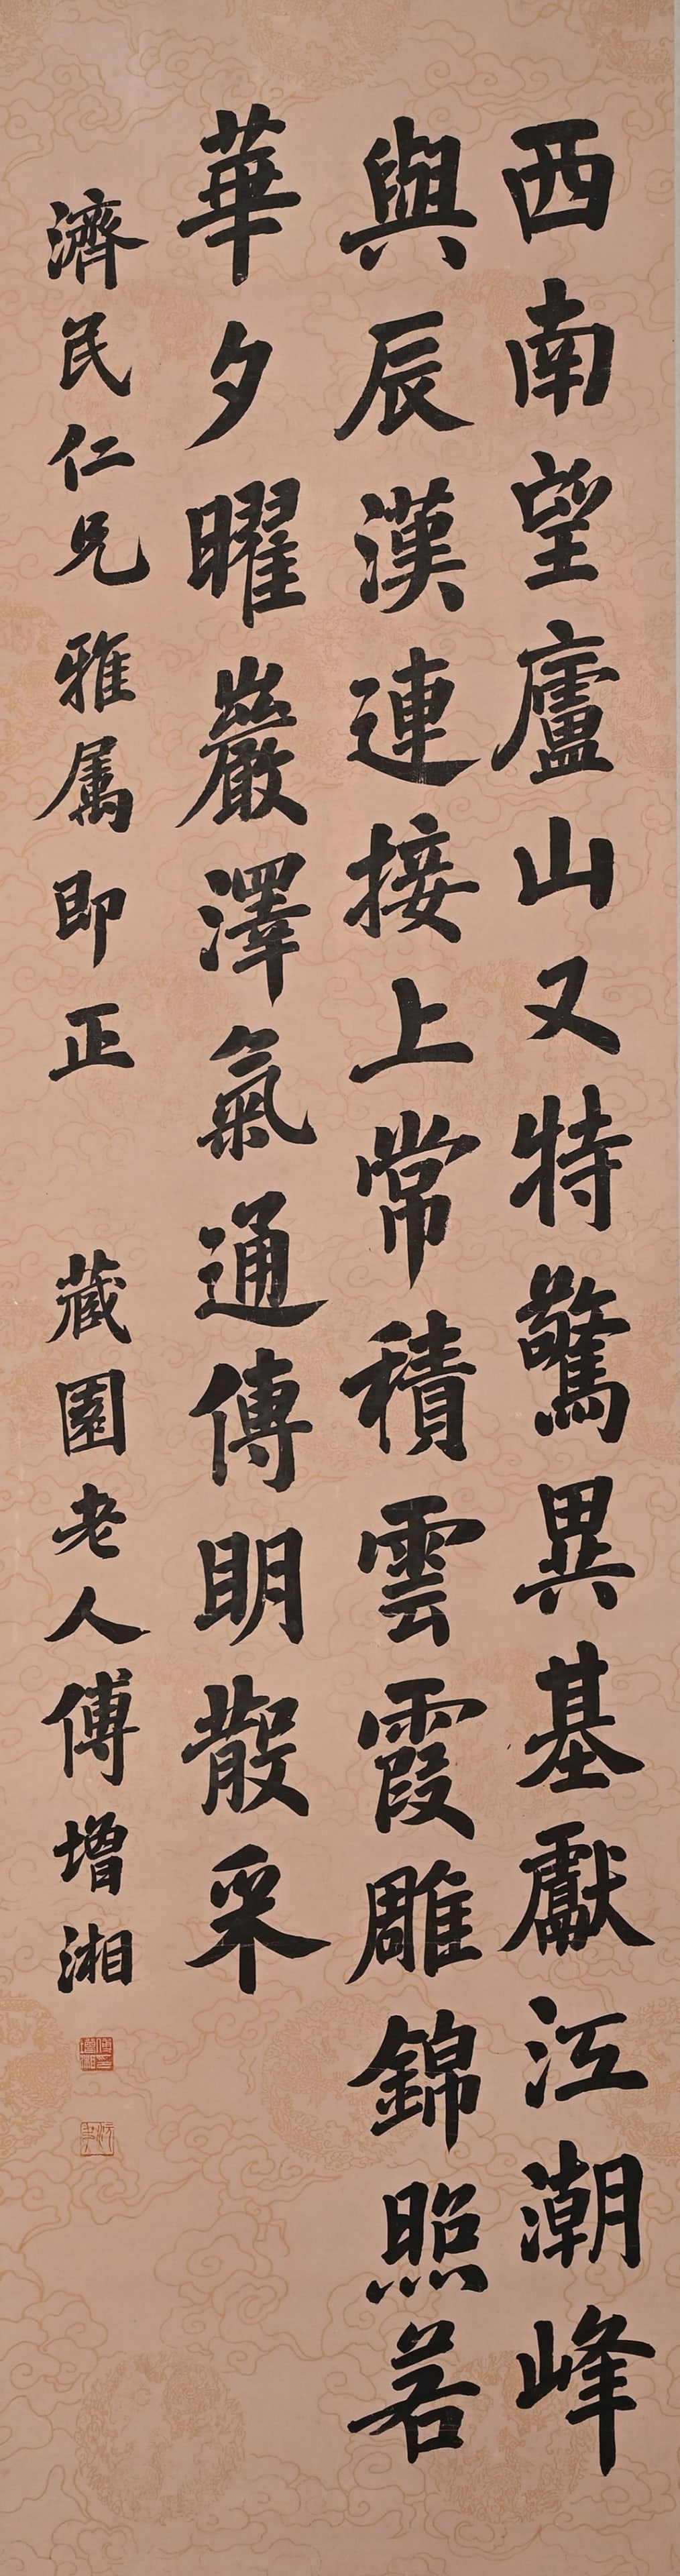 西南望廬山又特驚異基獻江潮峰
與辰漢連接上常積雲霞雕錦照若
華夕曜巖澤氣通傳明散采
濟民仁兄雅属即正 藏園老人傅增湘
傅增湘印
沅叔